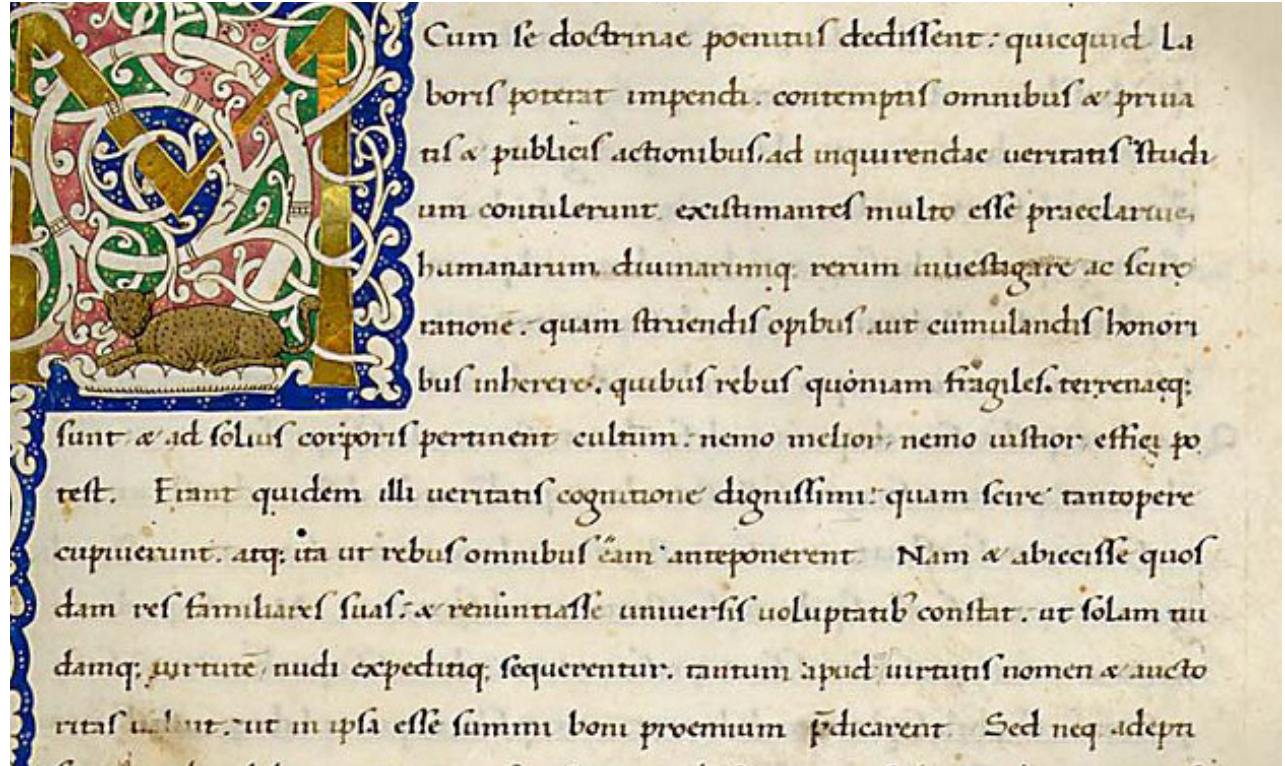 Cum se doctrinae poenitus dedissent: quicquid La
boris poterat impendi. contemptis omnibus & priua
tis & publicis actionibus. ad inquirendae ueritatis studi
um contulerunt. existimantes multo esse praeclarius,
humanarum diuinarumq; rerum inuestigare ac scire
rationē. quam struendis opibus aut cumulandis honori
bus inherere. quibus rebus quoniam fragiles. terrenaeq;
sunt & ad solius corporis pertinent cultum. nemo melior, nemo iustior effici po
test. Erant quidem illi ueritatis cognitione dignissimi: quam scire tantopere
cupiuerunt. atq; ita ut rebus omnibus eam anteponerent. Nam & abiecisse quos
dam res familiares suas: & renuntiasse uniuersis uoluptatib' constat. ut solam nu
damq; uirtutē nudi expeditiq; sequerentur. tantum apud uirtutis nomen & aucto
ritas ualuit. ut in ipsa esse summi boni proemium p̄dicarent. Sed neq adepti